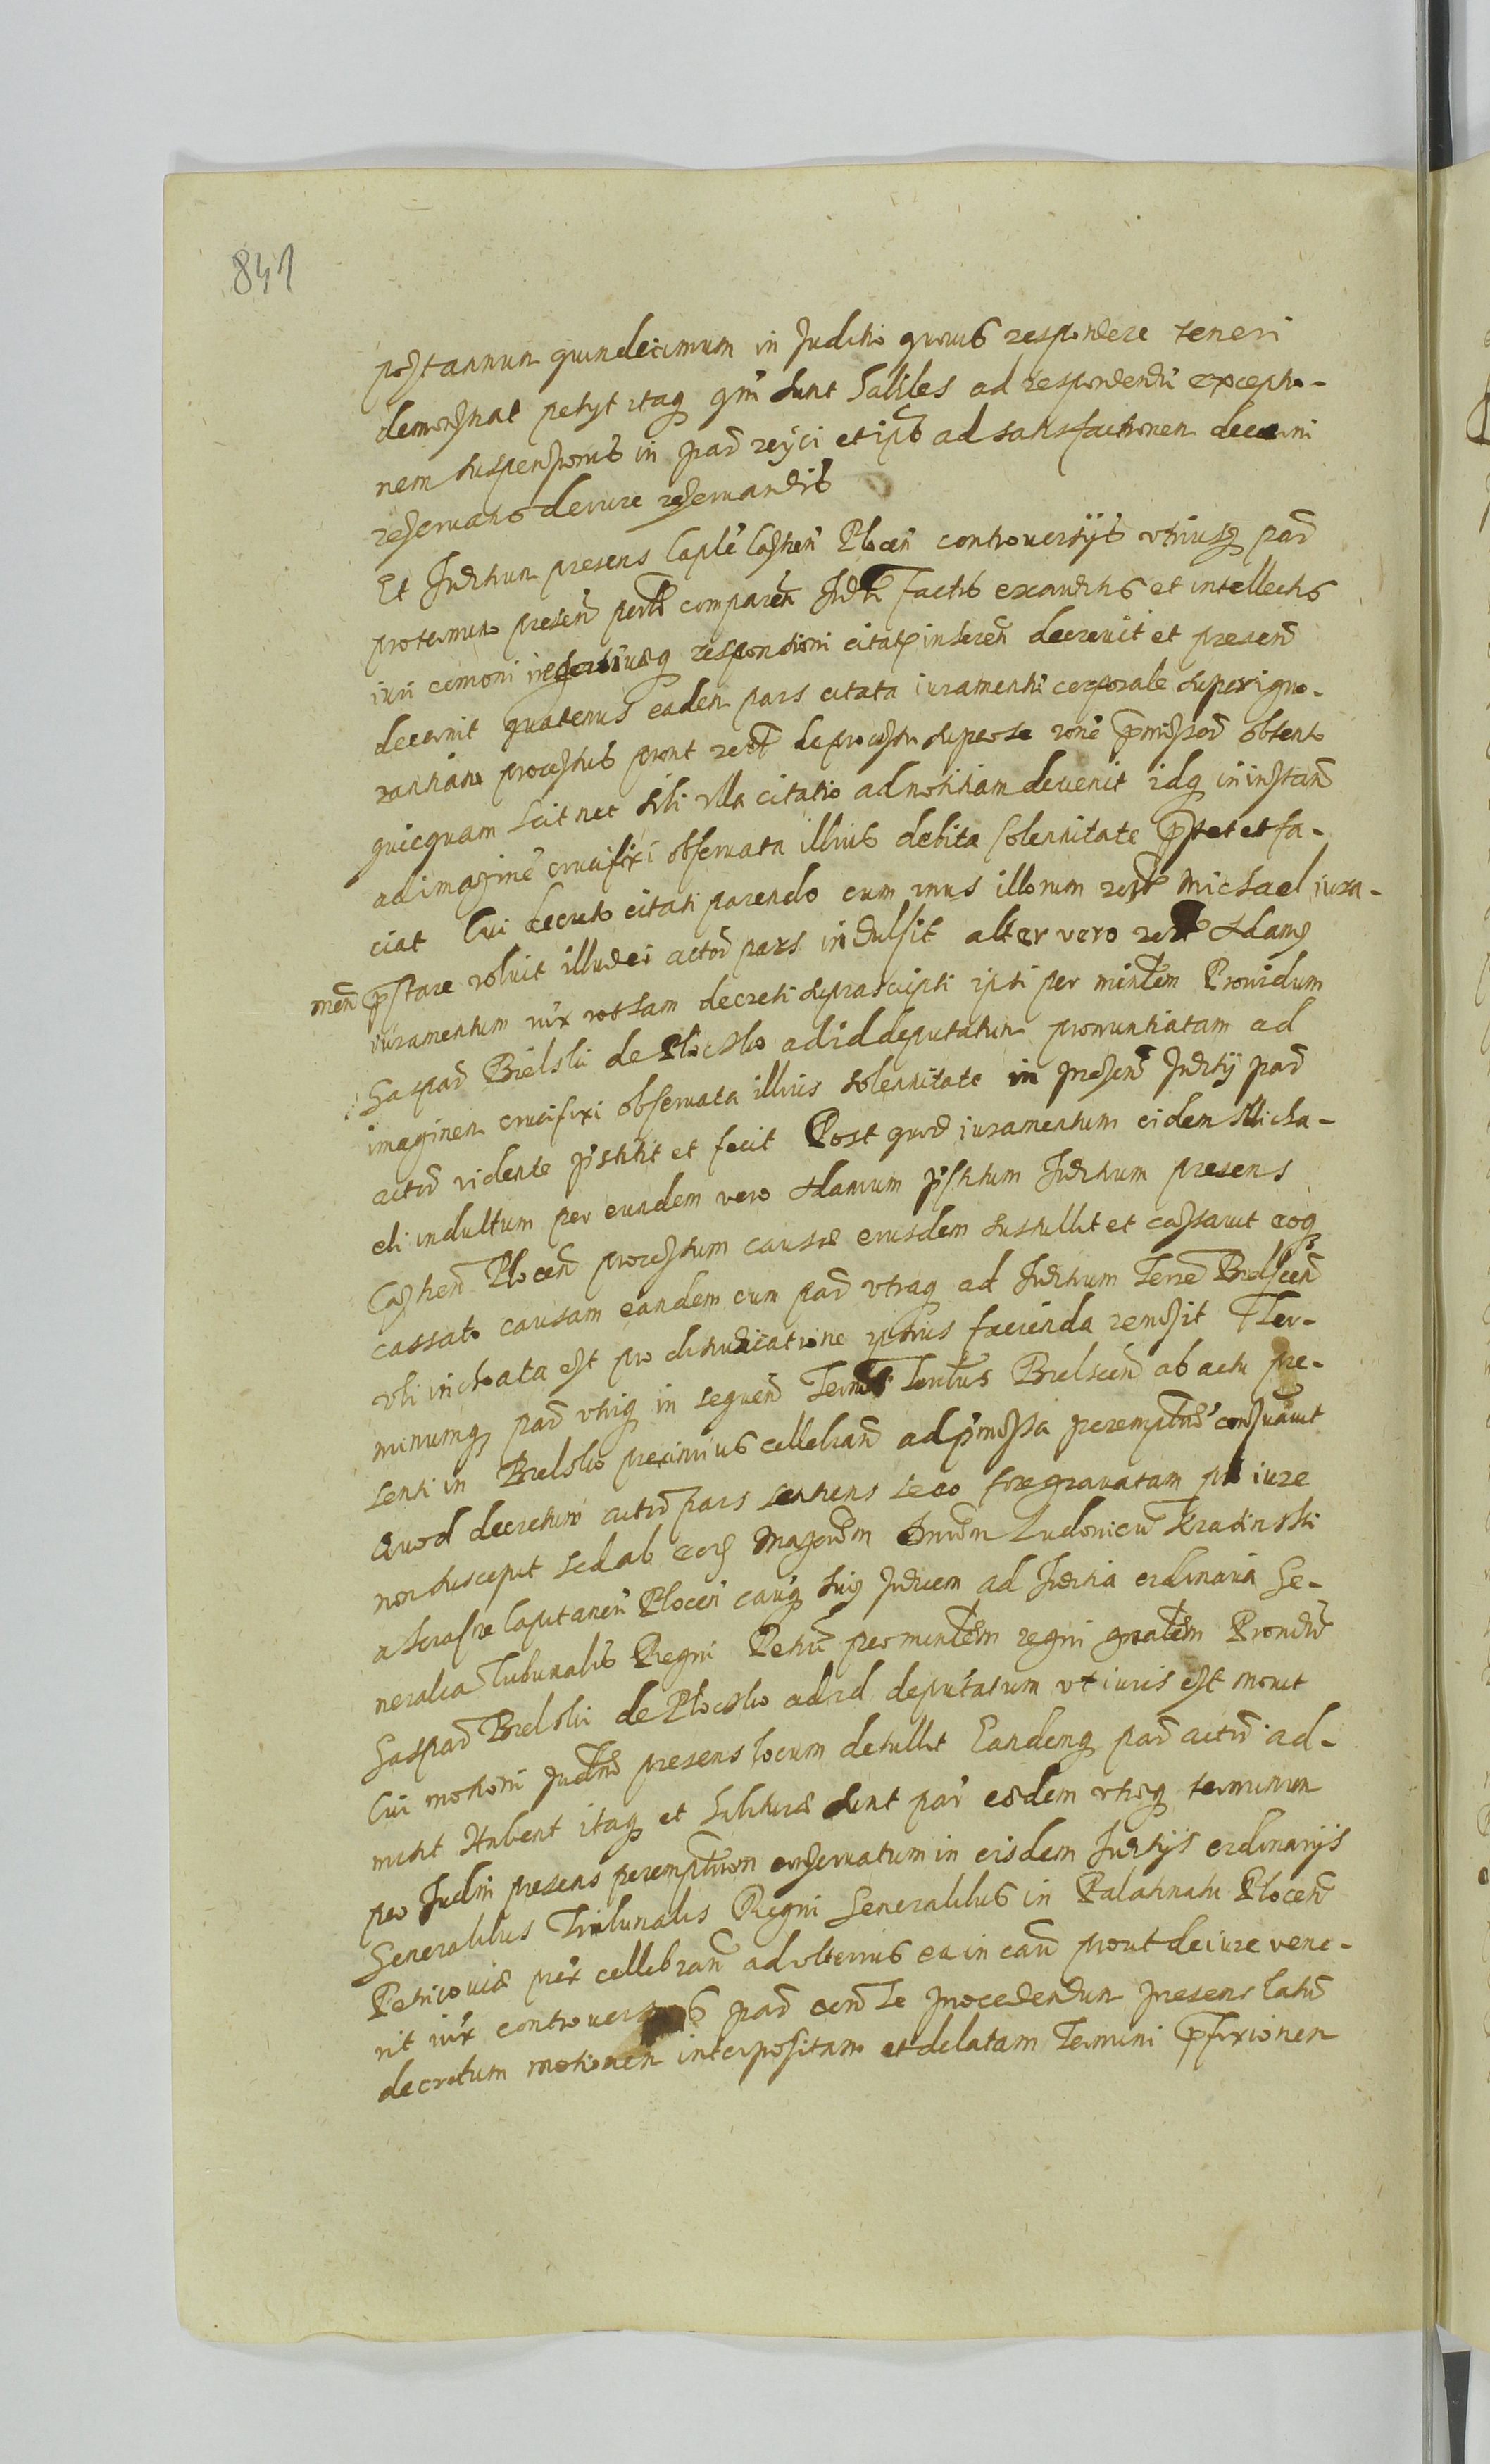 841
postannum quindecimum in Juditio quouis respondere teneri
demonstrat petyt itaq qm sunt habiles ad respondendū exceptio-
nem suspensionis in par reijci et ipīs ad satisfactionem decerni
reseruatis de iure reseruandis
Et Juditium presens Caplē Castren Plocen controuersijs vtriusq par
pro termino presen comparen Judtr factis exauditis et intellectis
iuri responsioni citatę inheren decreuit et presen
decernit quatenus eadem pars citata iuramentū corporale super igno-
rantiam processus prout de processu super se rone premissor obtento
quicquam scit nec sibi vlla citatio ad notitiam deuenit idq in instan
ad imaginē crucifixi obseruata illius debita solennitate prestet et fa-
ciat Cui decreto citati parendo cum vnus illorum Michael iura-
men prestare voluit illud ei actor pars indulsit alter vero Adamq
iuramentum iux rotham decreti suprascripti ipsi per minlem Prouidum
Gaspar Bielski de Plocsko ad id deputatum pronuntiatam ad
imaginem crucifixi obseruata illius solennitate in presen Judity par
actor vidente pstitit et fecit Post quod iuramentum eidem Micha-
eli indultum per eundem vero Adamum pstitum Juditium presens
Castren Plocen processum causæ eiusdem sustullit et cassauit eoq
cassato causam eandem cum par vtraq ad Juditium Terre Bielscen
vbi inchoata est pro disiudicatione ipsius facienda remisit Ter-
minumq par vtriq in sequen Termis Terribus Bielscen ab actu pre-
senti in Bielsko proximius cellebran ad pmissa peremptorie conseruauit
Quod decretum actor pars sentiens se eo fore grauatam pro iure
non suscepit sed ab eoq Magcum Dnum Ludouicū Krasinski
a Serasne Capitaneū Plocen eiusq suiq Judicem ad Juditia ordinaria Ge-
neralia Tribunalis Regni Petric per minlem regni gnalem Prouidū
Gaspar Bielski de Plocsko ad id deputatum vt iuris est mouit
Cui motioni Judm presens locum detullit Eandemq par actor ad-
misit Habent itaq et habituræ sunt par eædem vtræq terminum
per Judm presens peremptorium conseruatum in eisdem Juditijs ordinarijs
Generalibus Tribunalis Regni Generalibus in Palatinatu Plocen
Petricouiæ prox cellebran ad vlterius ea in caū prout de iure vene-
rit iux controuersias par eorum se procedendum presens latū
decretum motionem interpositam et delatam Termini prefixionem